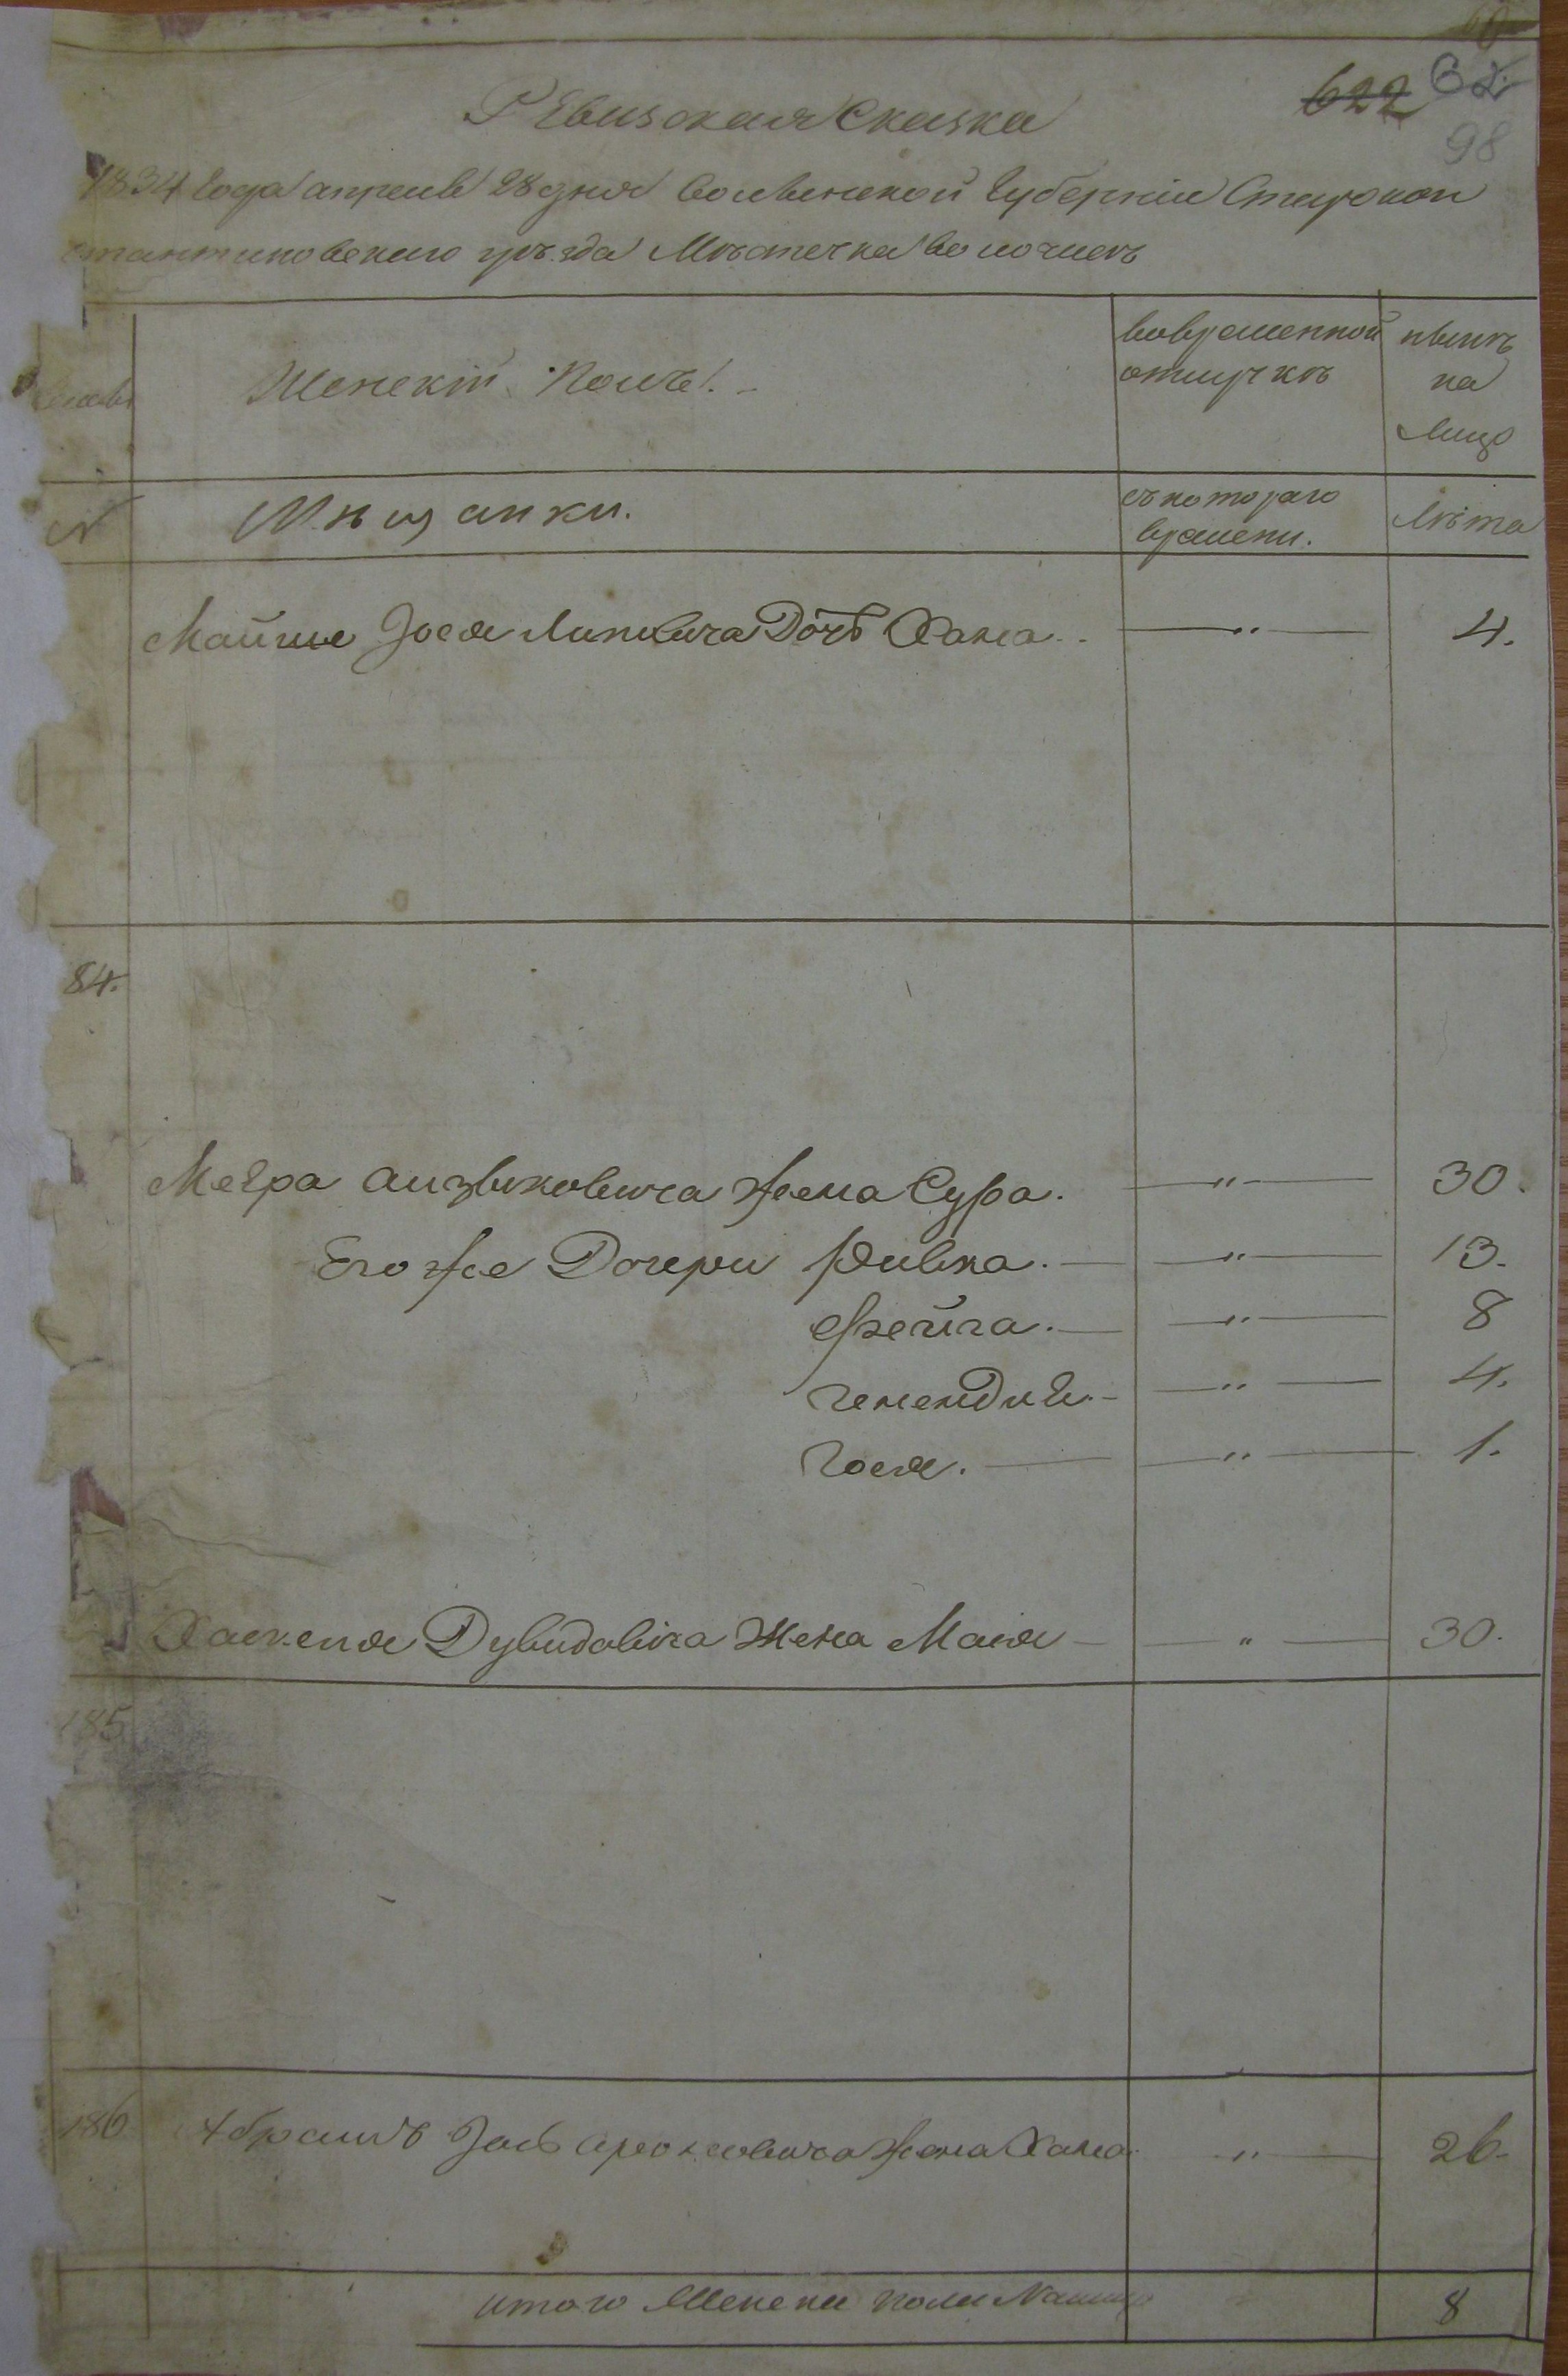 622 62.
98
Ревизская Сказка
1834 Года апреля 28 дня Волынской Губернии Старокон
стантиновского уѣзда Мѣстечка Волочискъ
Женский Полъ.
во временной
отлучкѣ
нынѣ
на
Лицо
№
Мѣщанки.
съ котораго
времени.
Лѣта
Майше Іося Липовича Дочь Хана. — „ — 4.
84.
Меера Аизыковича жена Сура. — „ — 30.
Его же Дочери Ривка. — „ — 13.
Фейга. — „ — 8
— „ — 4.
Гося. — „ — 1.
Дувидовича Жена Мася — „ — 30.
185
186 Абрамъ Іось жена Хана. „ — 26.
итого Женска пола Налицо 8